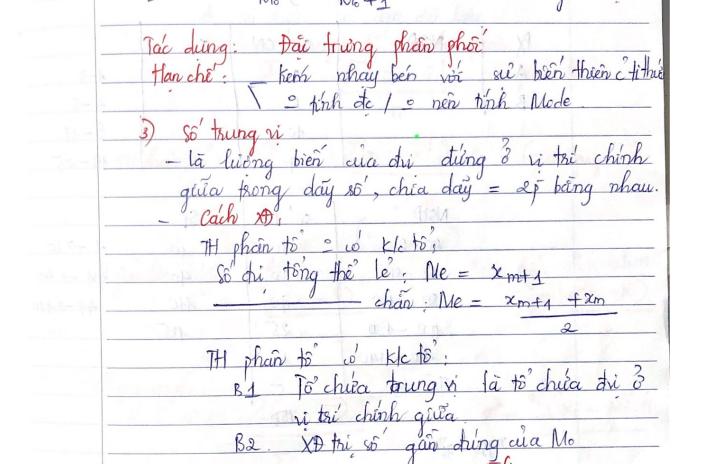 Mo Mo + 1
Tác dụng: Đặc trưng phân phối
Hạn chế: _ kém nhạy bén với sự biến thiên of tthức
\ = tính đc / = nên tính Mode
3) Số trung vị
- là lượng biến của đvi đứng ở vị trí chính
giữa trong dãy số, chia dãy = 2p bằng nhau.
- Cách XĐ:
TH phân tổ = có k/c tổ:
Số đvi tổng thể lẻ: Me = x_{m+1}
chẵn: Me = \frac{x_{m+1} + x_m}{2}
TH phân tổ có k/c tổ:
B1 Tổ chứa trung vị là tổ chứa đvi ở
vị trí chính giữa
B2. XĐ trị số gần đúng của Mo